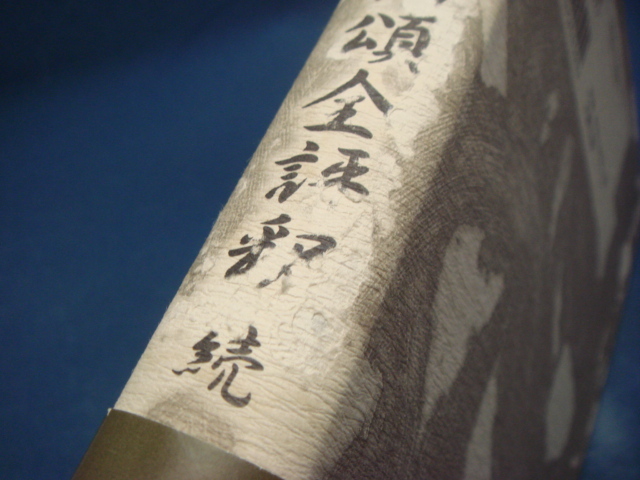 頌全評釈 続